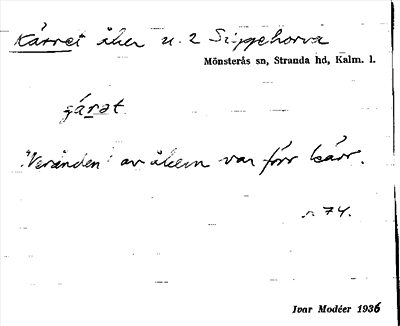 Kärret åker u. 2 Sippehorva
Mönsterås sn, Stranda hd, Kalm. l.
gárat
"Veränden" av åkern var förr kärr.
s. 74.
Ivar Modéer 1936